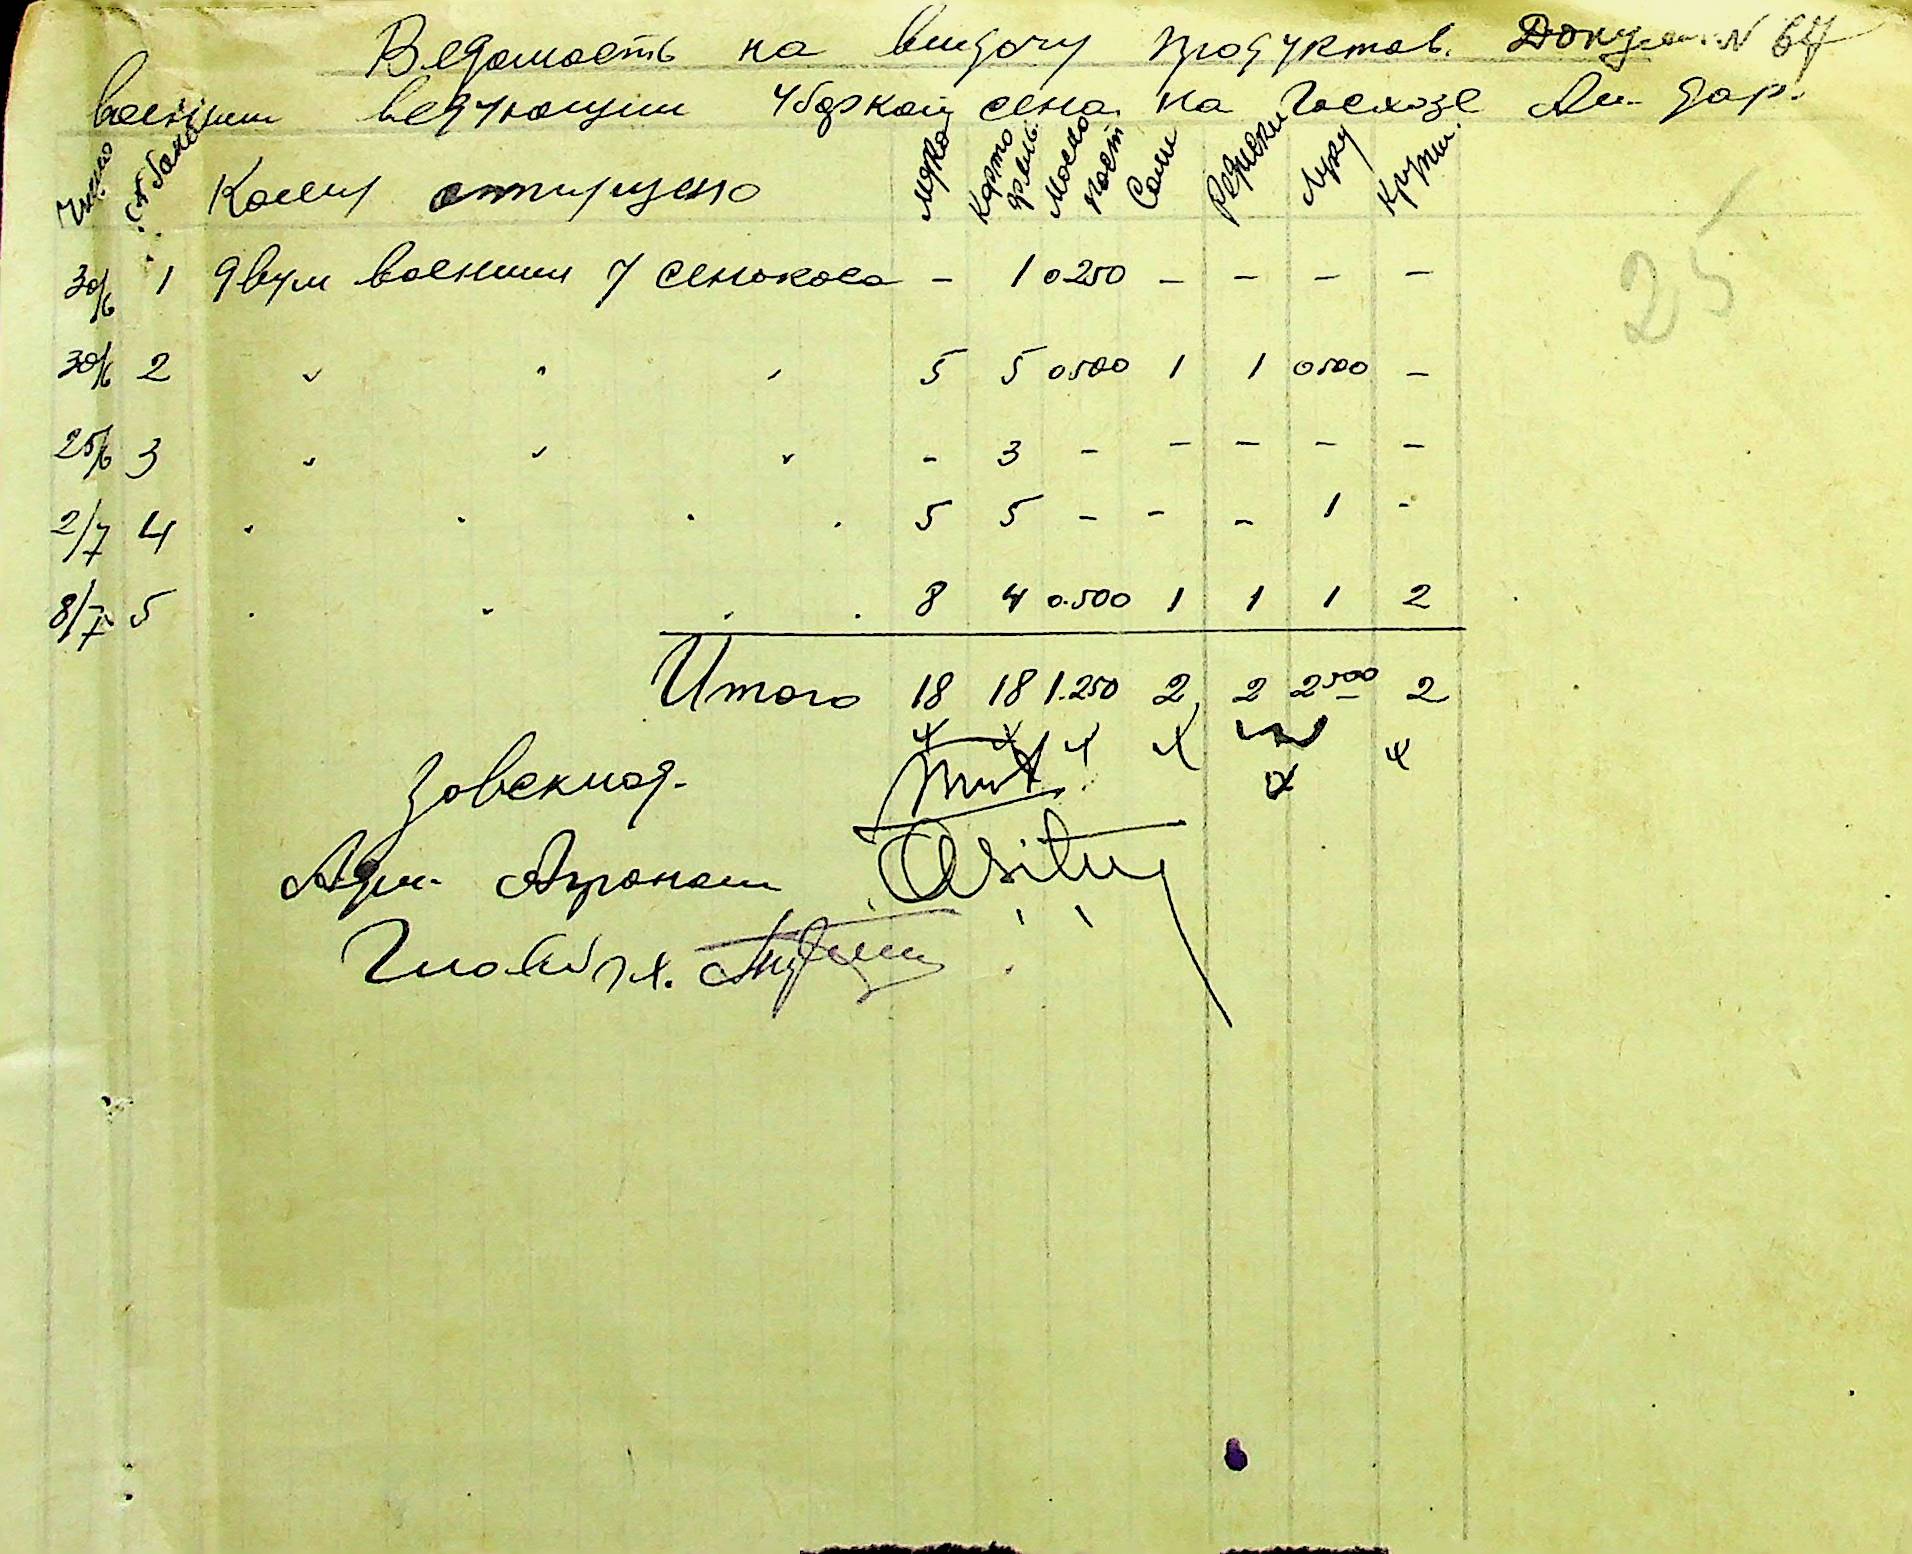 Ведомость на выдачу продуктов. Докум. N 64
военным ведующим уборкой сена на Госхозе Ам. дар.
Число Кому отпущено Мука Карто фель Масло пост Соли Редиски Луку Крупы.
30/6 1 Двум военным у сенокоса - 1 0.250 - - - -
30/6 2 " " " 5 5 0.500 1 1 0.500 -
25/6 3 " " " - 3 - - - - -
2/7 4 " " " " 5 5 - - - 1 -
8/7 5 " " " " 8 4 0.500 1 1 1 2
Итого 18 18 1.250 2 2 2.500 2
Завсклад.
Агроном
25